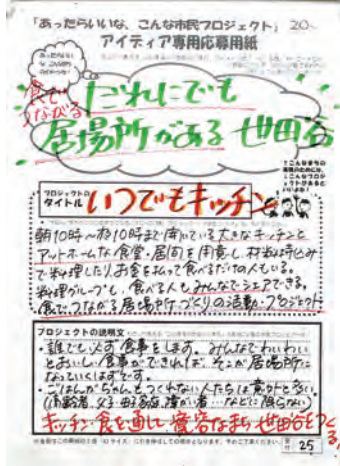 「あったらいいな、こんな市民プロジェクト」 20
アイディア専用応募用紙
食で
つながる
だれにでも
居場所がある 世田谷
プロジェクトの
タイトル いつでもキッチン
朝10時〜夜10時まで開いている大きなキッチンと
アットホームな食堂・居間を用意し、材料持込み
で料理したりお金を払って食べるだけの人もいる。
料理グループも、食べる人もみんなでシェアできる。
食でつながる居場所づくりの活動・プロジェクト
プロジェクトの説明文
・誰でも必ず食事をします。みんなでわいわい
とおいしい食事ができれば、そこが居場所に
なっていくはずです。
・ごはんがちゃんとつくれない人たちは意外と多い
(高齢者、父子・母子家庭、障がい者…などに限らない)
キッチン・食を通して寛容なまち世田谷をつくる!
受付 25